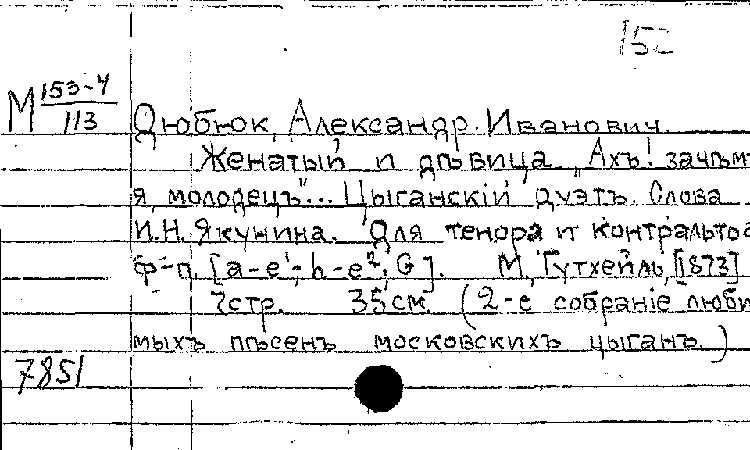 152
М 153-4/113
Дюбюк, Александр Иванович.
Женатый и дѣвица „Ахъ! зачѣмъ
я, молодецъ"... Цыганскій дуэтъ. Слова
И.Н. Якунина. Для тенора и контральто с
ф-п. [a-e¹; h-e²; G]. М., Гутхейль, [1873]
7стр. 35см. (2-е собраніе люби
мыхъ пѣсенъ московскихъ цыганъ.)
7851